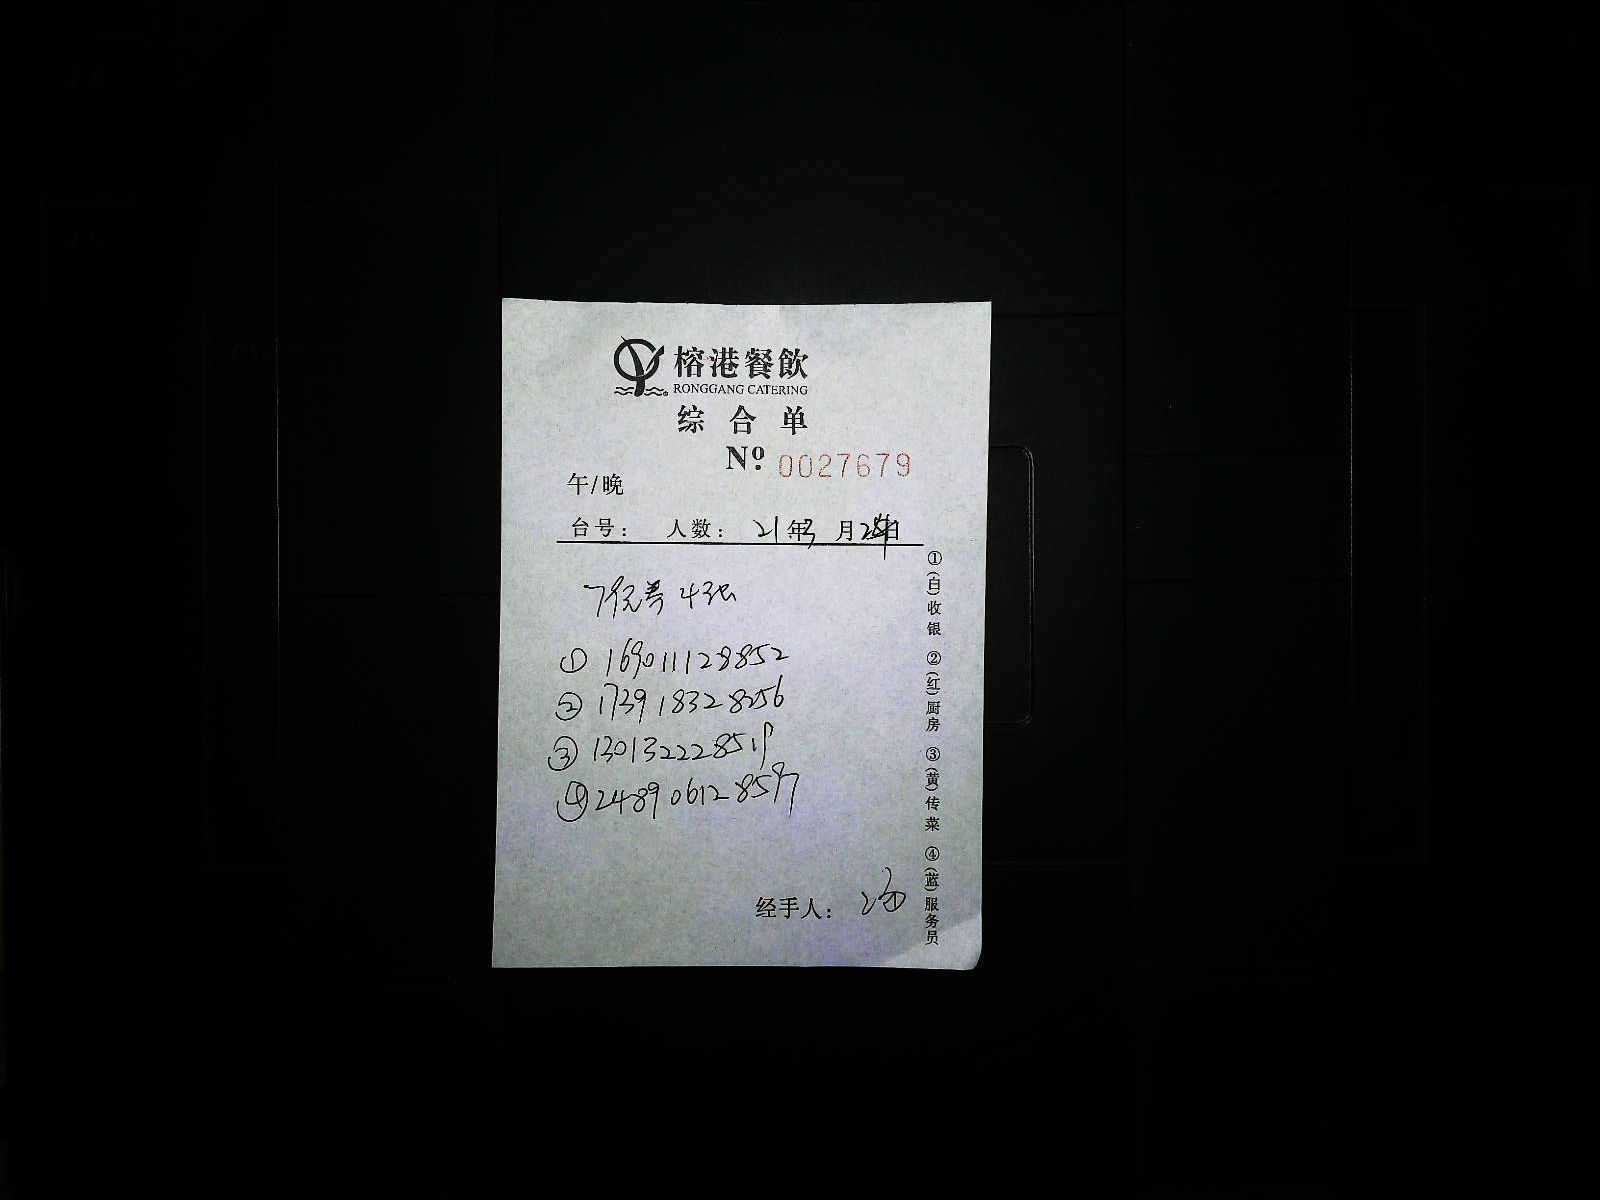 榕港餐飲
RONGGANG CATERING
综合单
Nº 0027679
午/晚
台号： 人数： 21年3月 日
4张
① 169011128852
② 173918328256
③ 130132228519
④ 248906128597
经手人：
①(白)收银 ②(红)厨房 ③(黄)传菜 ④(蓝)服务员